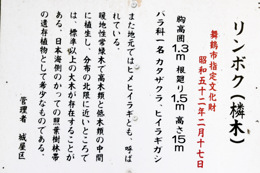 リンボク(橉木)
舞鶴市指定文化財
昭和五十二年二月十七日
胸高囲1.3m 根廻り1.5m 高さ15m
バラ科一名 カタザクラ、ヒイラギガシ
また地元ではヒメヒイラギとも、呼ば
れている。
暖地性常緑木で高木類と低木類の中間
に植生し、分布の北限に近いところで
は、標準以上の大木が存在することが
ある。日本海側のかつての照葉樹林帯
の遺存植物として希少なものである。
管理者 城屋区